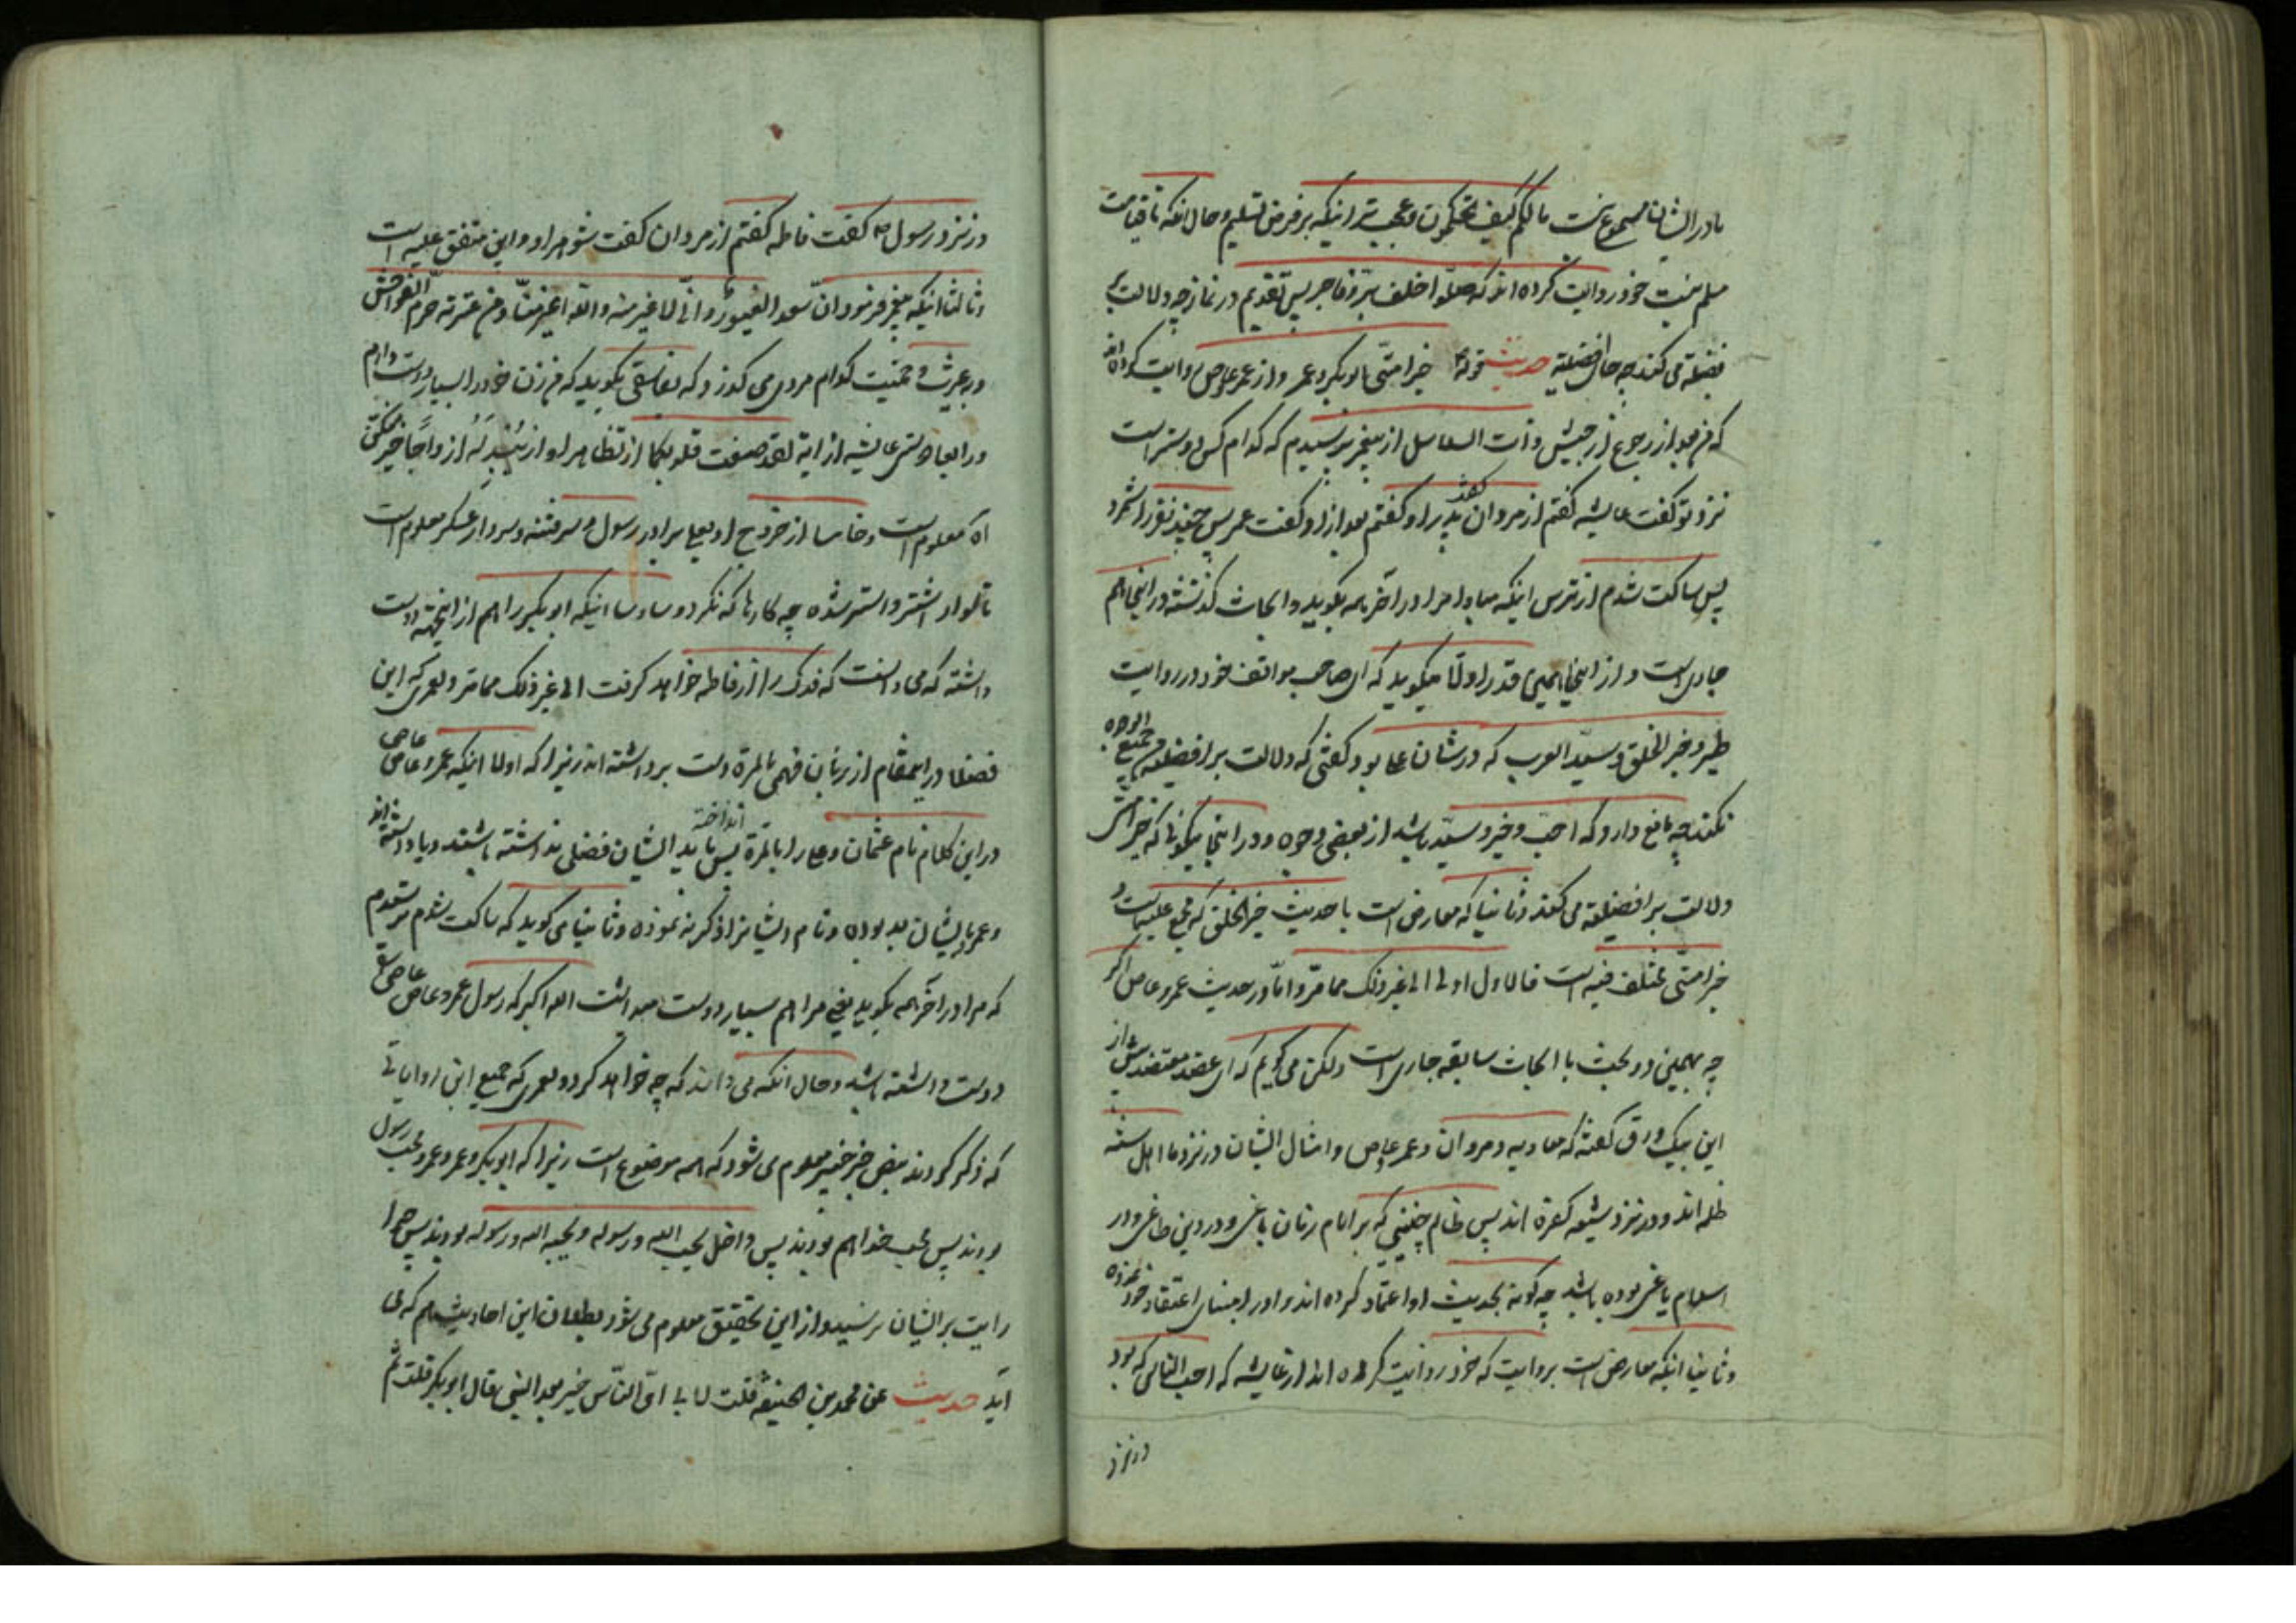 مادر ایشان مسموع نیست مالکم کیف تحکمون و عجب‌تر اینکه بر فرض تسلیم و حال آنکه تا قیامت
خود روایت کرده اند که صلّوا خلف برّ و فاجر پس تقدیم در نماز چه دلالت بر
فضیلة می کند چه جای افضلیة حدیث قوله خیر امتی ابوبکر و عمر و از عمر عاص روایت کرده اند
که من بعد از رجوع از جیش ذات السلاسل از پیغمبر پرسیدم که کدام کس دوستر است
نزد تو گفت عایشه گفتم از مردان گفت پدر او گفتم بعد از او گفت عمر پس چند نفر را شمرد
پس ساکت شدم از ترس اینکه مبادا مرا در آخر همه بگوید و ابحاث گذشته در اینجا هم
جاری است و از اینجا همین قدر اولا میگوید که ای صاحب مواقف خود در روایت
طیر و خیر الخلق و سید العرب که در شان علی بود گفتی که دلالت بر افضلیة من جمیع الوجوه
نکند چه مانع دارد که احب و خیر و سید باشد از بعضی وجوه و در اینجا میگوئی که خیر امتی
دلالت بر افضلیة می کند و ثانیا که معارض است با حدیث خیر الخلق که مجمع علیه است و
خیر امتی مختلف فیه است فالاول اولی الی غیر ذلک مما مرّ و امّا در حدیث عمرو عاص اگر
چه همین دو بحث با ابحاث سابقه جاری است ولکن می گویم که ای عضد معتضد پیش از
این بیک ورق گفته که معاویه و مروان و عمر عاص و امثال ایشان در نزد ما اهل سنة
ظلمه اند و در نزد شیعه کفرة اند پس ظالم چنینی که بر امام زمان باغی و در دین طاغی و در
اسلام یاغی بوده باشد چه گونه بحدیث او اعتماد کرده اند و او را مبنای اعتقاد خود نموده
و ثانیا اینکه معارض است بروایت که خود روایت کرده اند از عایشه که احب الناس که بود
در نزد
در نزد رسول گفت فاطمه گفتم از مردان گفت شوهر او و این متفق علیه است
و ثالثا اینکه پیغمبر فرمود انّ سعد الغیور و انّی لاغیر منه و الله اغیر منّا و من غیرته حرم الفواحش
و غیرت و حمیت کدام مردی می گذارد که بفاسقی بگوید که من زن خود را بسیار دوست دارم
و رابعا دوستی عایشه از آیه لقد صغت قلوبکما از تظاهر او از یبدله ازواجا خیر منکن
آه معلوم است و خامسا از خروج او بعلی برادر رسول و سرفتنه و سردار عسکر معلوم است
تا سوار اشتر و استر شده چه کارها که نکرد و سادسا اینکه ابوبکر را هم از اینجهة دوست
داشته که می دانست که فدک را از فاطمه خواهد گرفت الی غیر ذلک مما مرّ و لعمری که این
فضلا در اینمقام از زبان فهمی بالمرة دست برداشته اند زیرا که اولا اینکه عمرو عاصی
در این کلام نام عثمان و علی را بالمرة انداخته پس باید ایشان فضلی نداشته باشند و یا دانسته اند
و عمر بایشان بد بوده و نام ایشانرا ذکر ننموده و ثانیا می گوید که ساکت شدم ترسیدم
که مرا در آخر همه بگوید یعنی مرا هم بسیار دوست میداشت الله اکبر که رسول عمرو عاصی
دوست داشته باشد و حال آنکه می داند که چه خواهد کرد و لعمری که جمیع این روایاتی
که ذکر کردند بنص خبر خیبر معلوم می شود که همه موضوع است زیرا که ابوبکر و عمر و عمرو محب رسول
بودند پس محب خدا هم بودند پس داخل یحب الله و رسوله و یحبه الله و رسوله بودند پس چرا
رایت بر ایشان نرسید و از این تحقیق معلوم می شود بطلان این احادیث هم که می
آید حدیث عن محمد بن الحنیفة قلت لابی ایّ الناس خیر بعد النبی قال ابوبکر قلت ثم